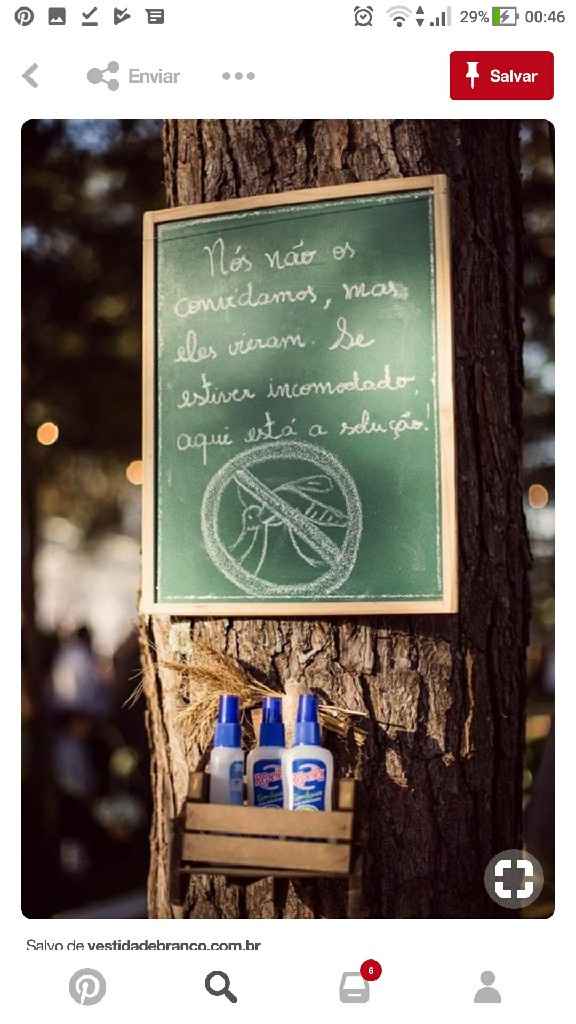 29% 00:46
Enviar
Salvar
Nós não os
convidamos, mas
eles vieram. Se
estiver incomodado,
aqui está a solução!
Salvo de vestidadebranco.com.br
6